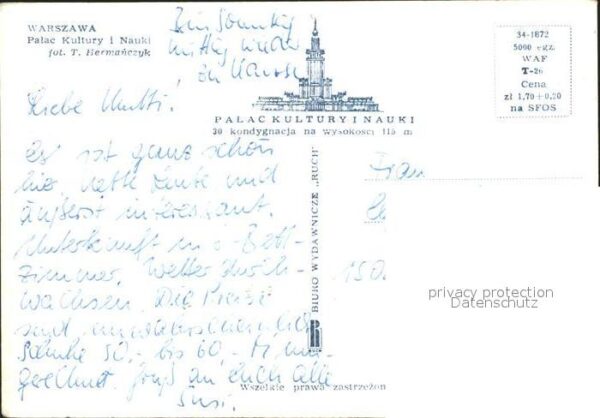 WARSZAWA
Pałac Kultury i Nauki
fot. T. Hermańczyk
Bin Sonntag
mittag wieder
in
Liebe Mutti!
PAŁAC KULTURY I NAUKI
30 kondygnacja na wysokości 115 m
34-1872
5000 egz.
WAF
T-26
Cena
zł 1,70+0,20
na SFOS
Es ist ganz schön
hier, nette Leute und
äußerst interessant.
Unterkunft in 3-Bett-
zimmer, Wetter durch-
wachsen. Die Preise
sind unwahrscheinlich
Schuhe 50,- bis 60,- M um-
gerechnet. Gruß an Euch alle
Susi.
BIURO WYDAWNICZE „RUCH"
R
Wszelkie prawa zastrzeżon
Frau
150
privacy protection
Datenschutz